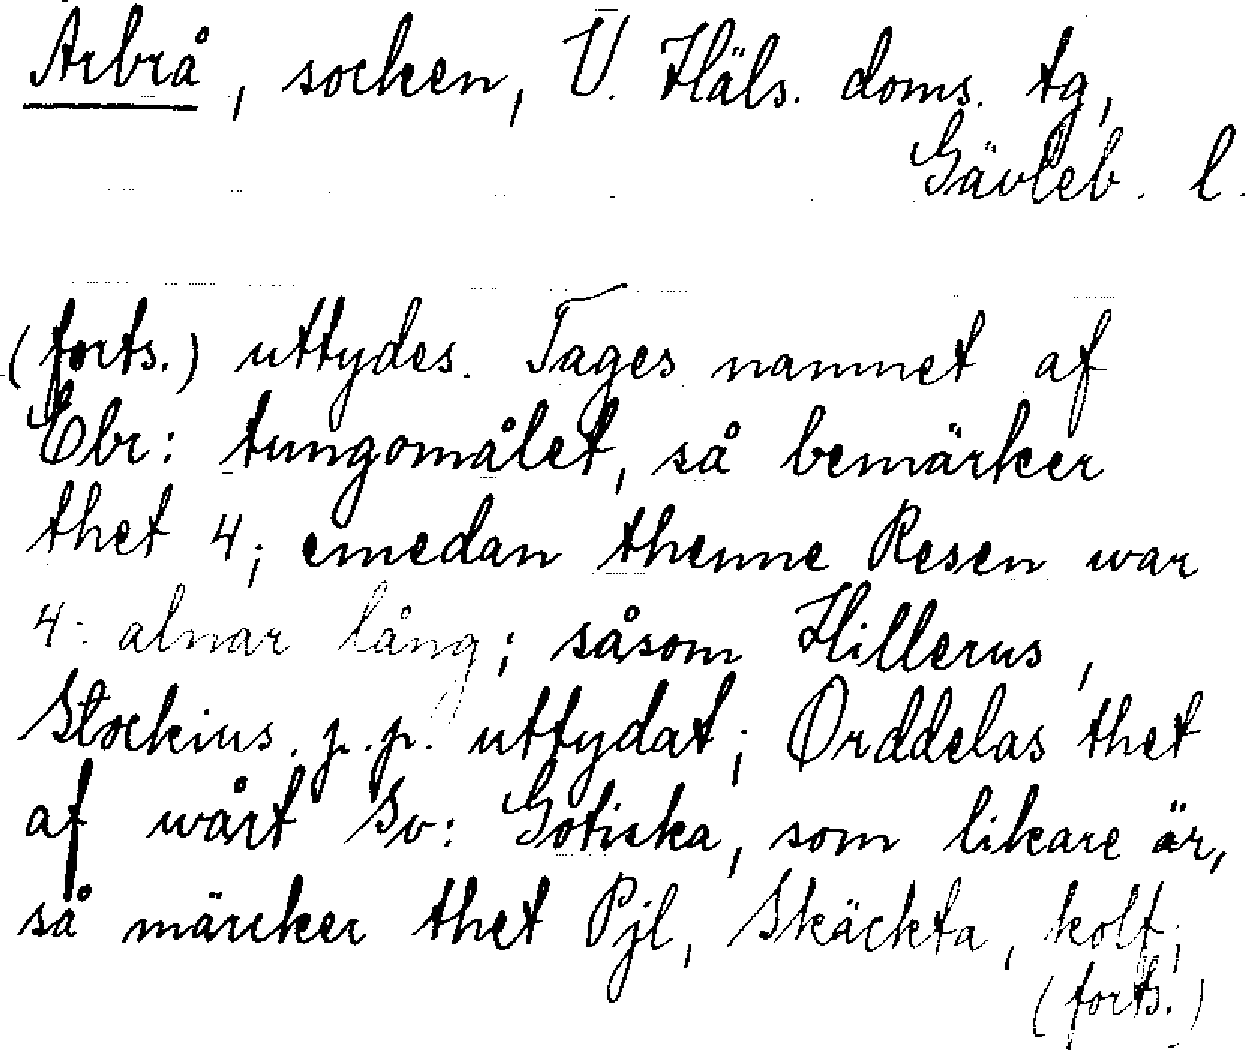 Arbrå, socken, V. Häls. doms. tg,
Gävleb. l.
(forts.) uttydes. Tages namnet af
Ebr: tungomålet, så bemärker
thet 4; emedan thenne Resen war
4: alnar lång; såsom Hillerus,
Stockius. p. p. uttydat; Orddelas thet
af wårt Sv: Gotiska, som likare är,
så märcker thet Pjl, Skäckta, kolf;
(forts.)